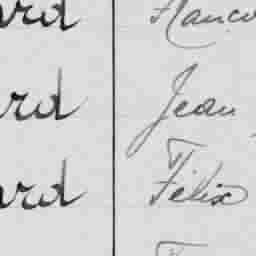 ard Franco
ard Jean
ard Félix